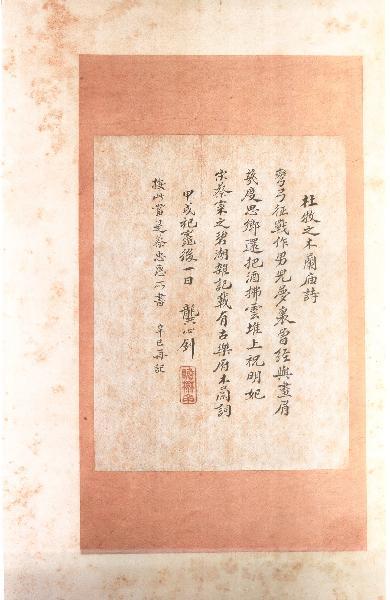 杜牧之木蘭庙詩
彎弓征戰作男兒夢裏曾經與畫眉
幾度思鄉還把酒拂雲堆上祝明妃
宋蔡寀之碧湖雜記載有古樂府木蘭詞
甲戌祀竈後一日 龔心釗
按此當是蔡忠惠所書 辛巳再記